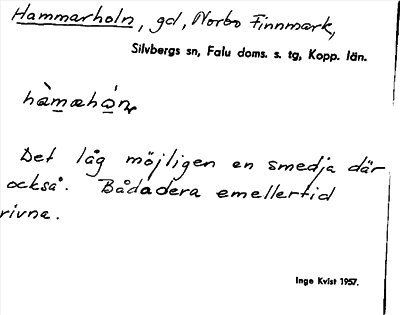 Hammarholn, gd, Norbo Finnmark,
Silvbergs sn, Falu doms. s. tg, Kopp. län.
hàmæhån
Det låg möjligen en smedja där
också. Bådadera emellertid
rivna.
Inge Kvist 1957.